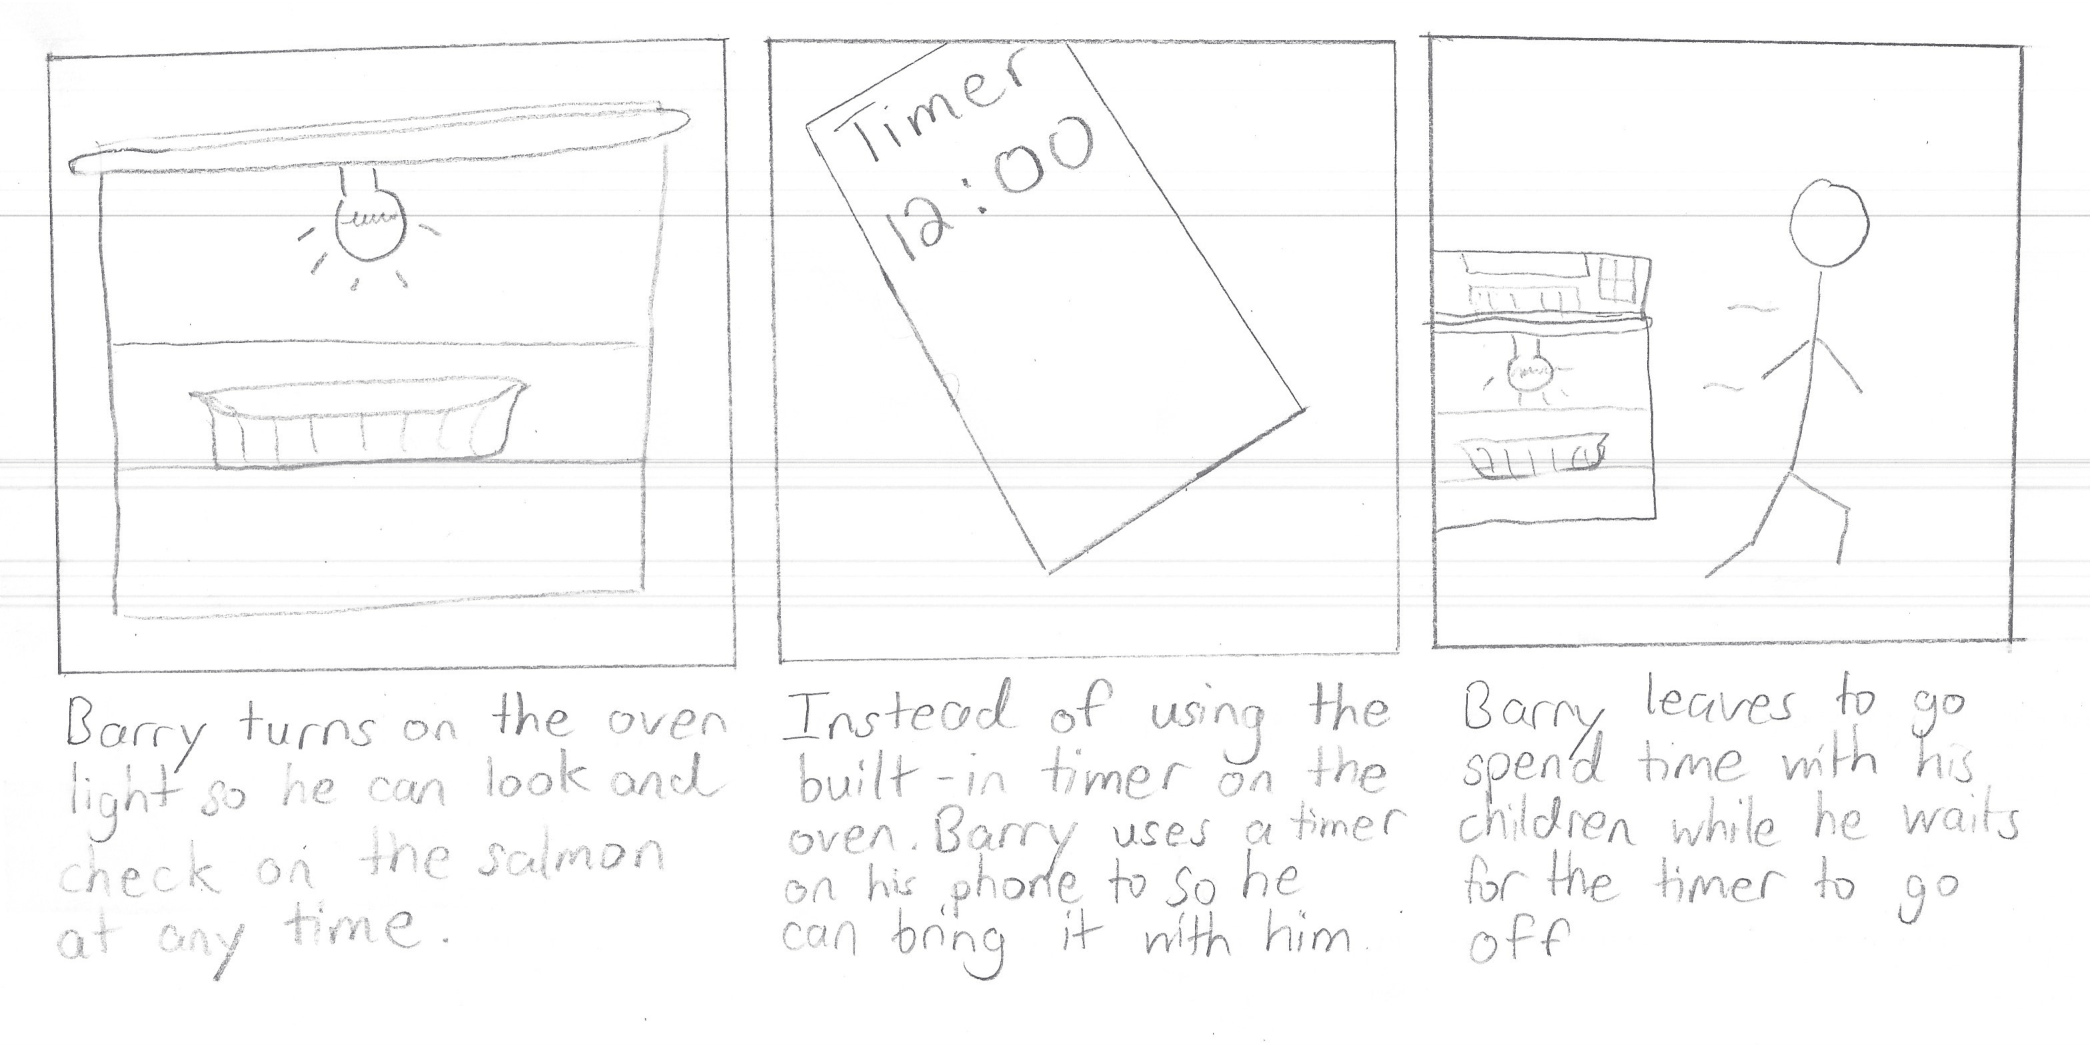 Timer
12:00
Barry turns on the oven
light so he can look and
check on the salmon
at any time.
Instead of using the
built-in timer on the
oven. Barry uses a timer
on his phone to so he
can bring it with him.
Barry leaves to go
spend time with his
children while he waits
for the timer to go
off